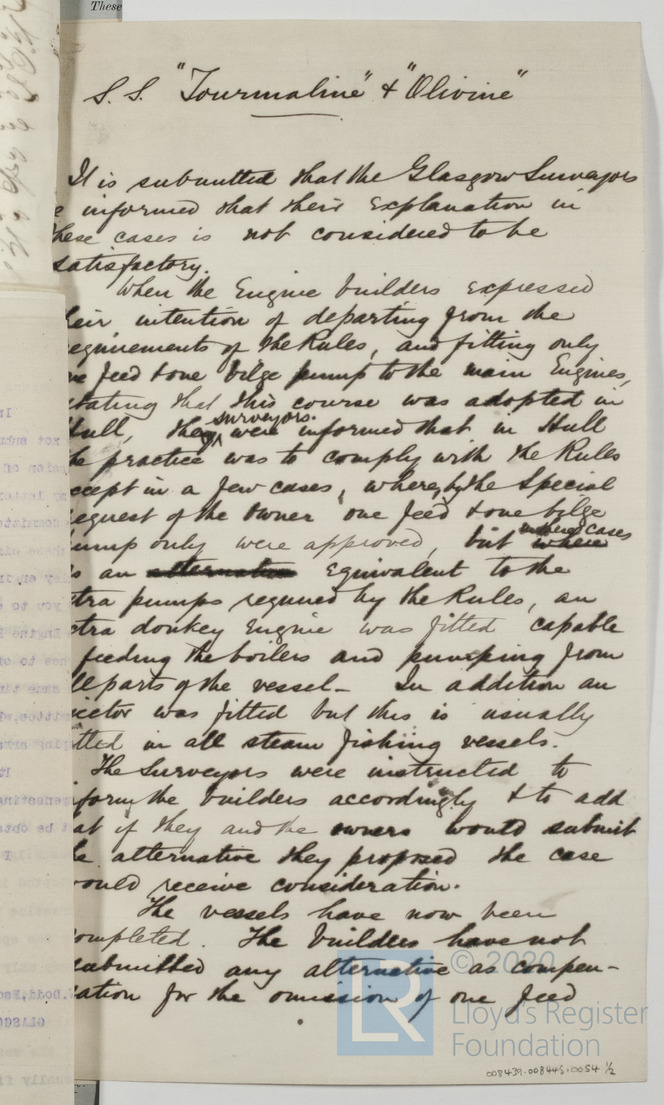 These
S.S. "Tourmaline" & "Olivine"
It is submitted that the Glasgow Surveyors
e informed that their explanation in
hese cases is not considered to be
satisfactory.
When the Engine builders expressed
heir intention of departing from the
equirements of the Rules, and fitting only
ne feed & one bilge pump to the main Engines,
stating that this course was adopted in
Hull, the surveyors. were informed that in Hull
he practice was to comply with the Rules
xcept in a few cases, where, by the Special
equest of the owner one feed & one bilge
ump only were approved, but in these cases
s an Equivalent to the
xtra pumps required by the Rules, an
xtra donkey Engine was fitted capable
feeding the boilers and pumping from
ll parts of the vessel - In addition an
jector was fitted but this is usually
itted in all steam fishing vessels.
The Surveyors were instructed to
form the builders accordingly & to add
at if they and the owners would submit
he alternative they proposed the case
ould receive consideration.
The vessels have now been
ompleted. The builders have not
submitted any alternative as compen-
sation for the omission of one feed
© 2020
LR
Lloyd's Register
Foundation
008439-008445-0054 1/2